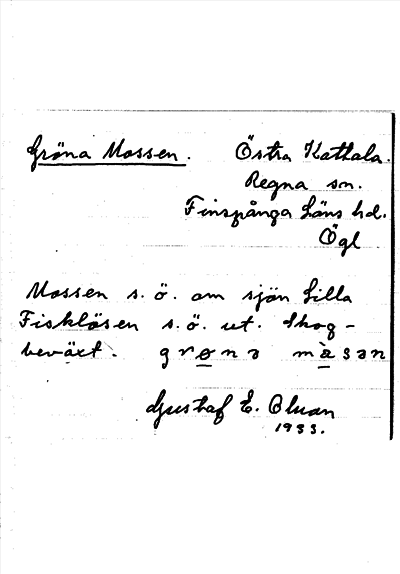 Gröna Mossen.
Östra Kattala.
Regna sn.
Finspånga Läns hd.
Ögl
Mossen s. ö. om sjön Lilla
Fisklösen s. ö. ut. Skog-
beväxt. grøna màsan
Gustaf E. Olman
1933.